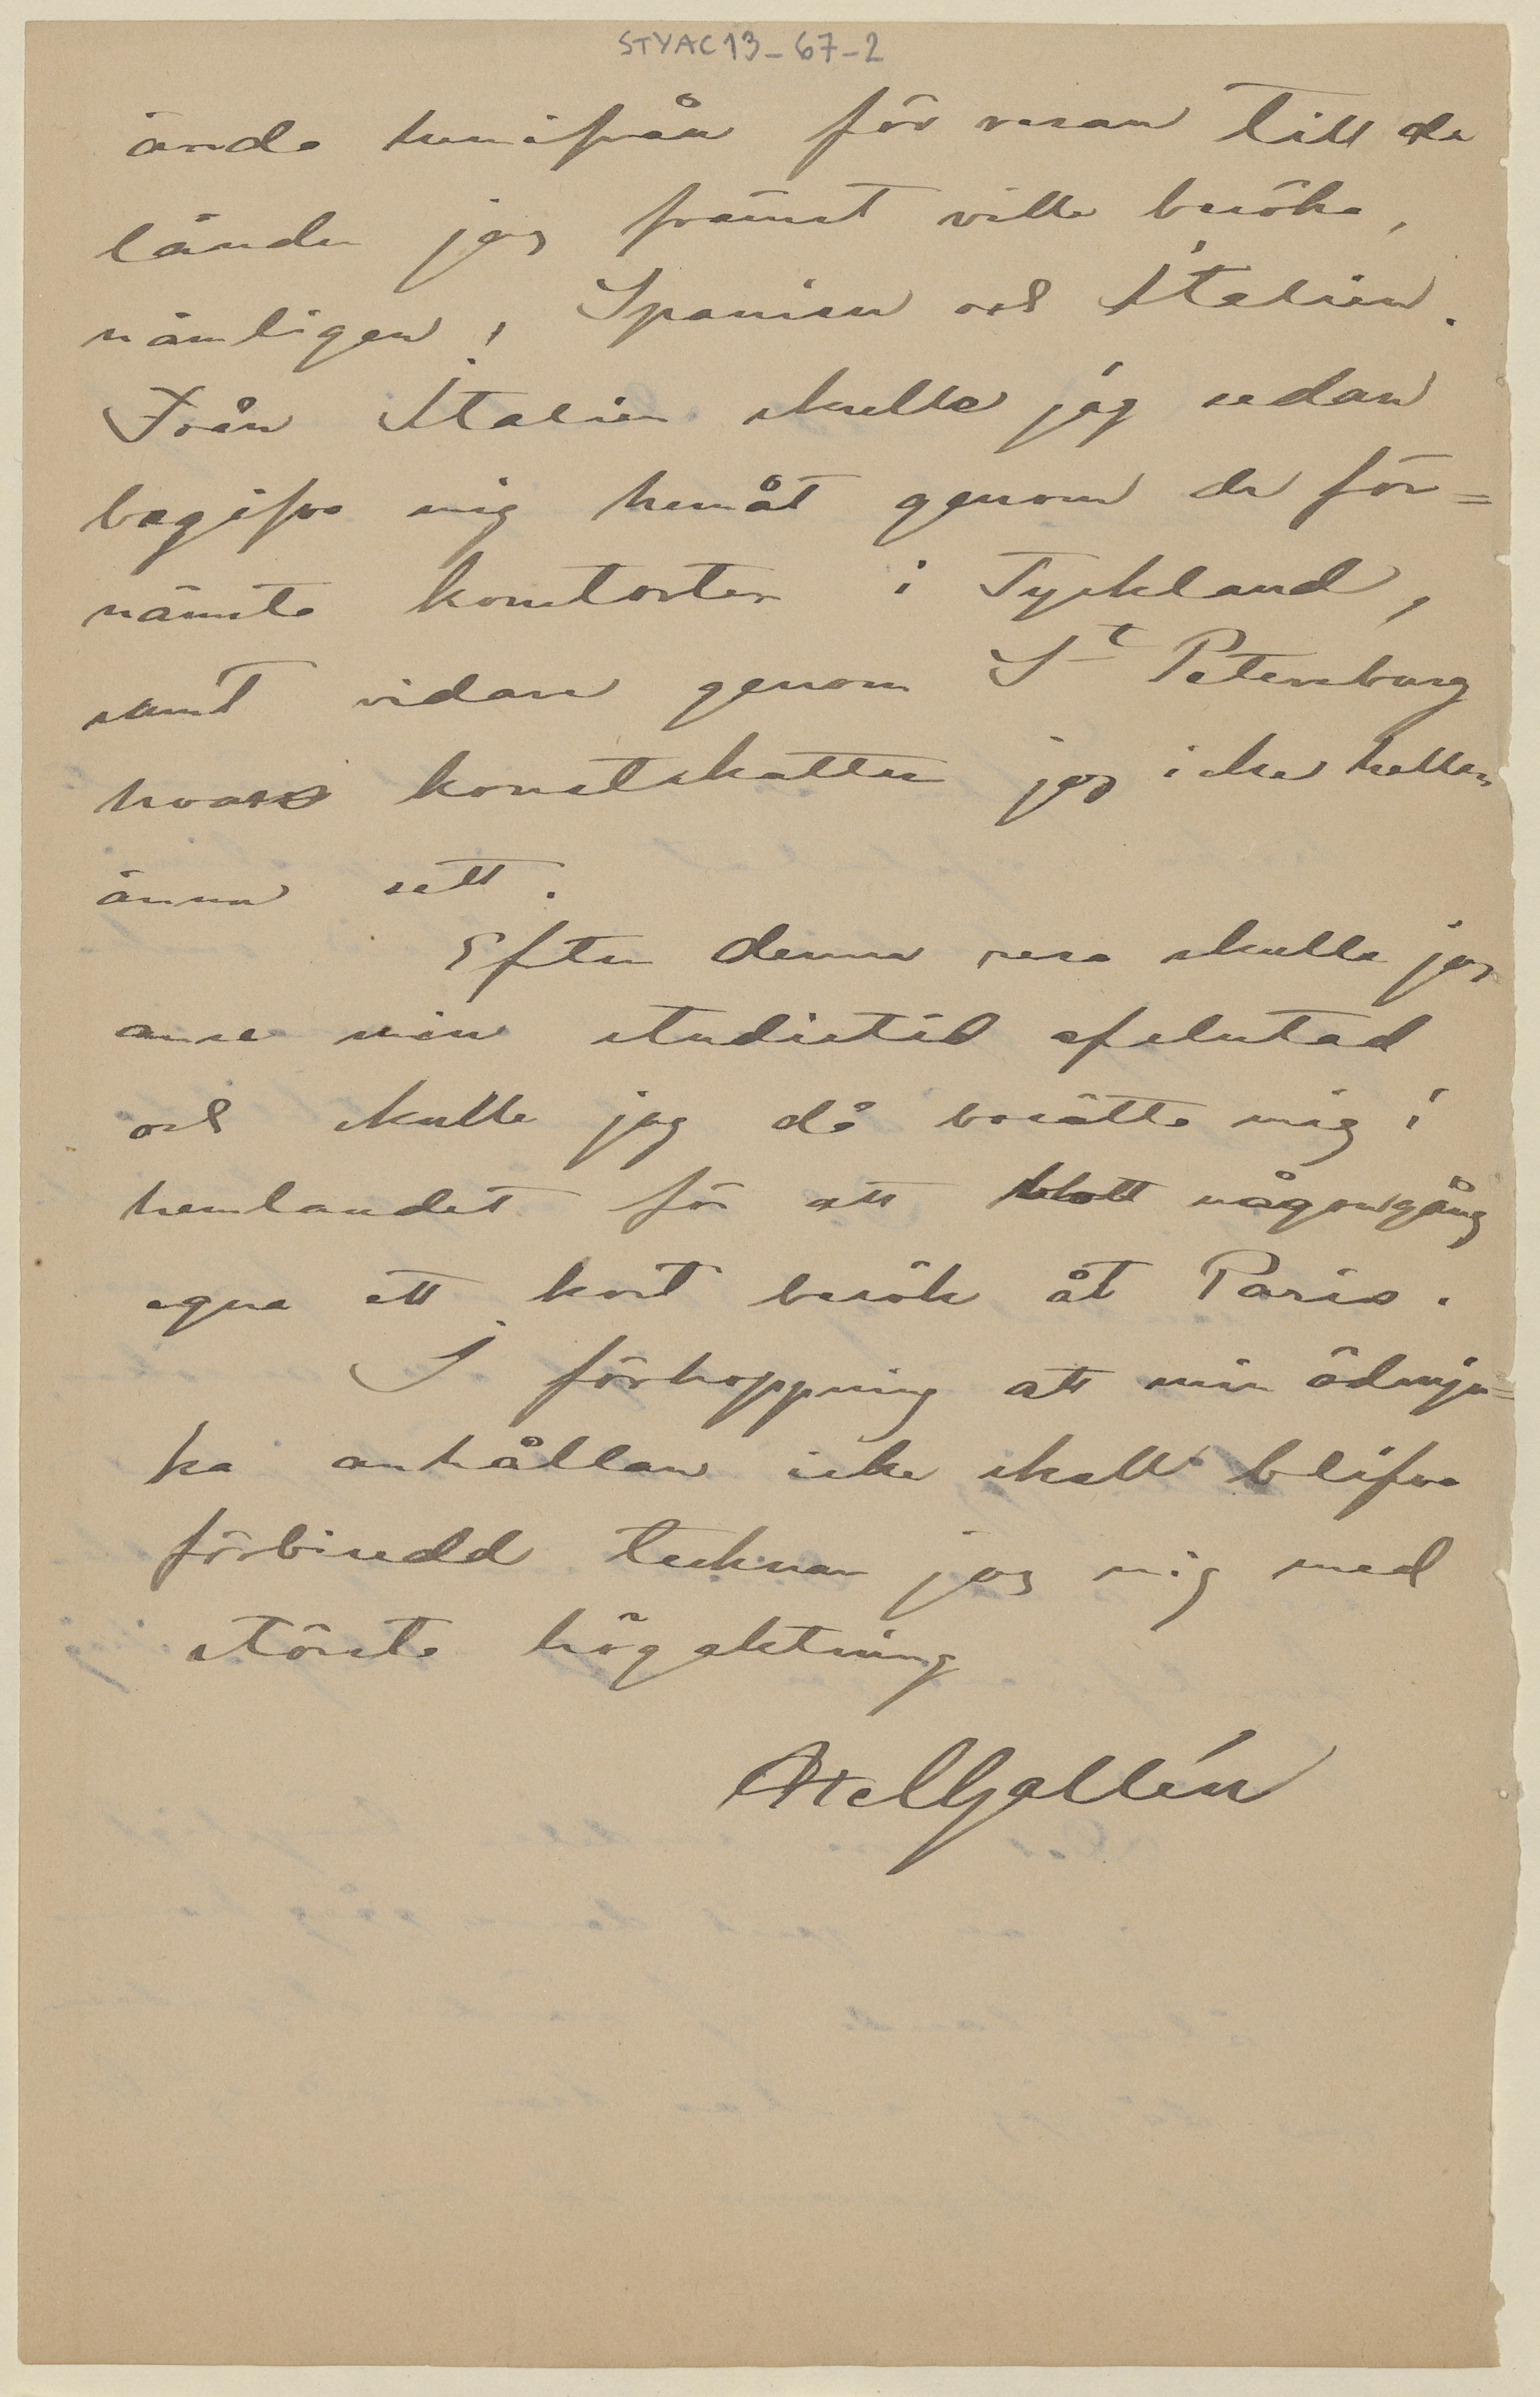 STYAC13-67-2
ända hemifrån för resan till de
länder jag främst ville besöka,
nämligen: Spanien och Italien.
Från Italien skulle jag sedan
begifva mig hemåt genom de för=
nämsta konstorter i Tyskland,
samt vidare genom St Petersburg
hvars konstskatter jag icke heller
ännu sett.
Efter denna resa skulle jag
anse min studietid afslutad
och skulle jag då bosätta mig i
hemlandet för att blott någongång
egna ett kort besök åt Paris.
I förhoppning att min ödmju=
ka anhållan icke skall blifva
förbisedd tecknar jag mig med
största högaktning
Axel Gallén